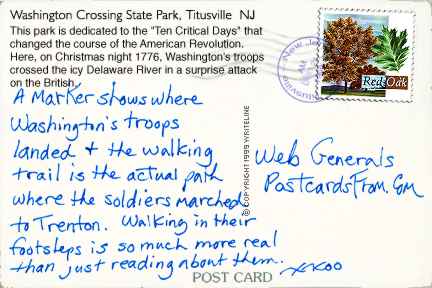 Washington Crossing State Park, Titusville NJ
This park is dedicated to the "Ten Critical Days" that
changed the course of the American Revolution.
Here, on Christmas night 1776, Washington's troops
crossed the icy Delaware River in a surprise attack
on the British.
A Marker shows where
Washington's troops
landed & the walking
trail is the actual path
where the soldiers marched
to Trenton. Walking in their
footsteps is so much more real
than just reading about them.
xxoo
© COPYRIGHT 1999 WRITELINE
POST CARD
New Je
Red Oak
Web Generals
PostcardsFrom.Com